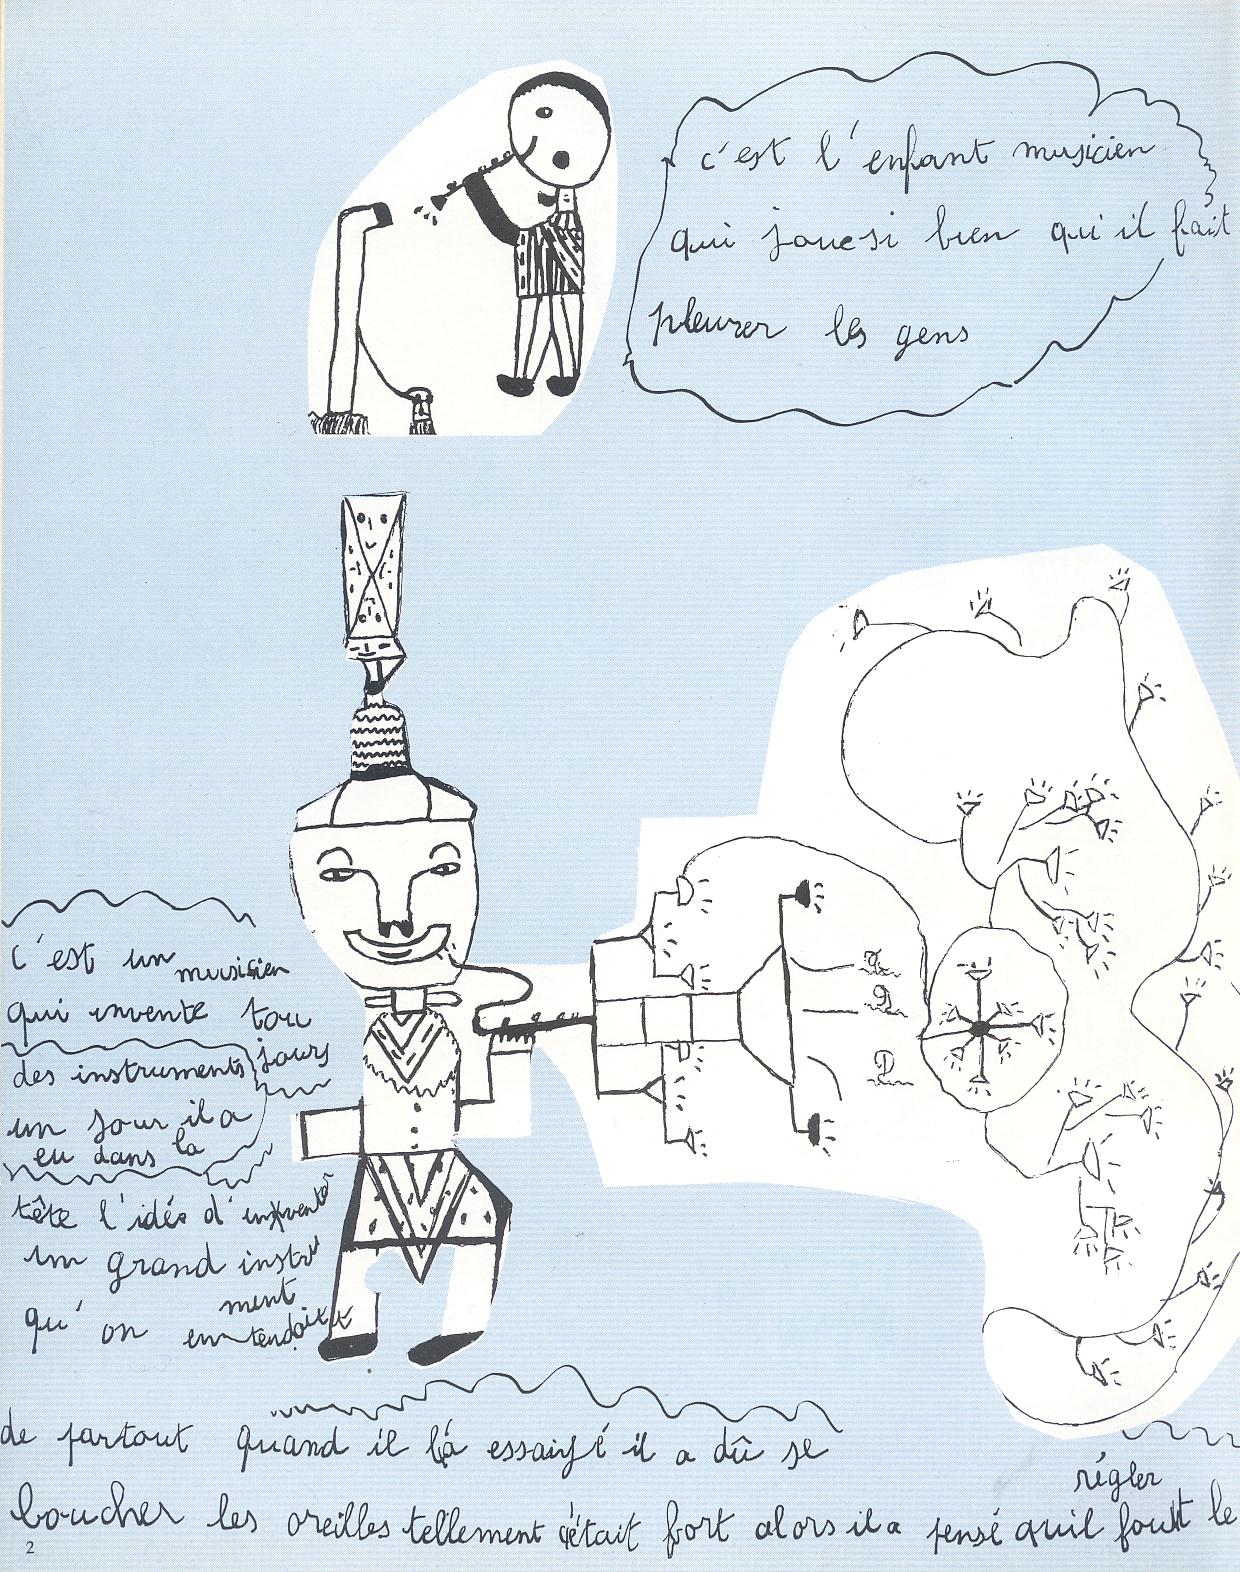 c'est l'enfant musicien
qui joue si bien qui il fait
pleurer les gens
c'est un musicien
qui invente tou
jours
des instruments
un jour il a
eu dans la
tête l'idés d'inventer
un grand instru
ment
qu'on entendait
de partout quand il là essaiyé il a dû se
régler
boucher les oreilles tellement c'était fort alors il a pensé quil fout le
2